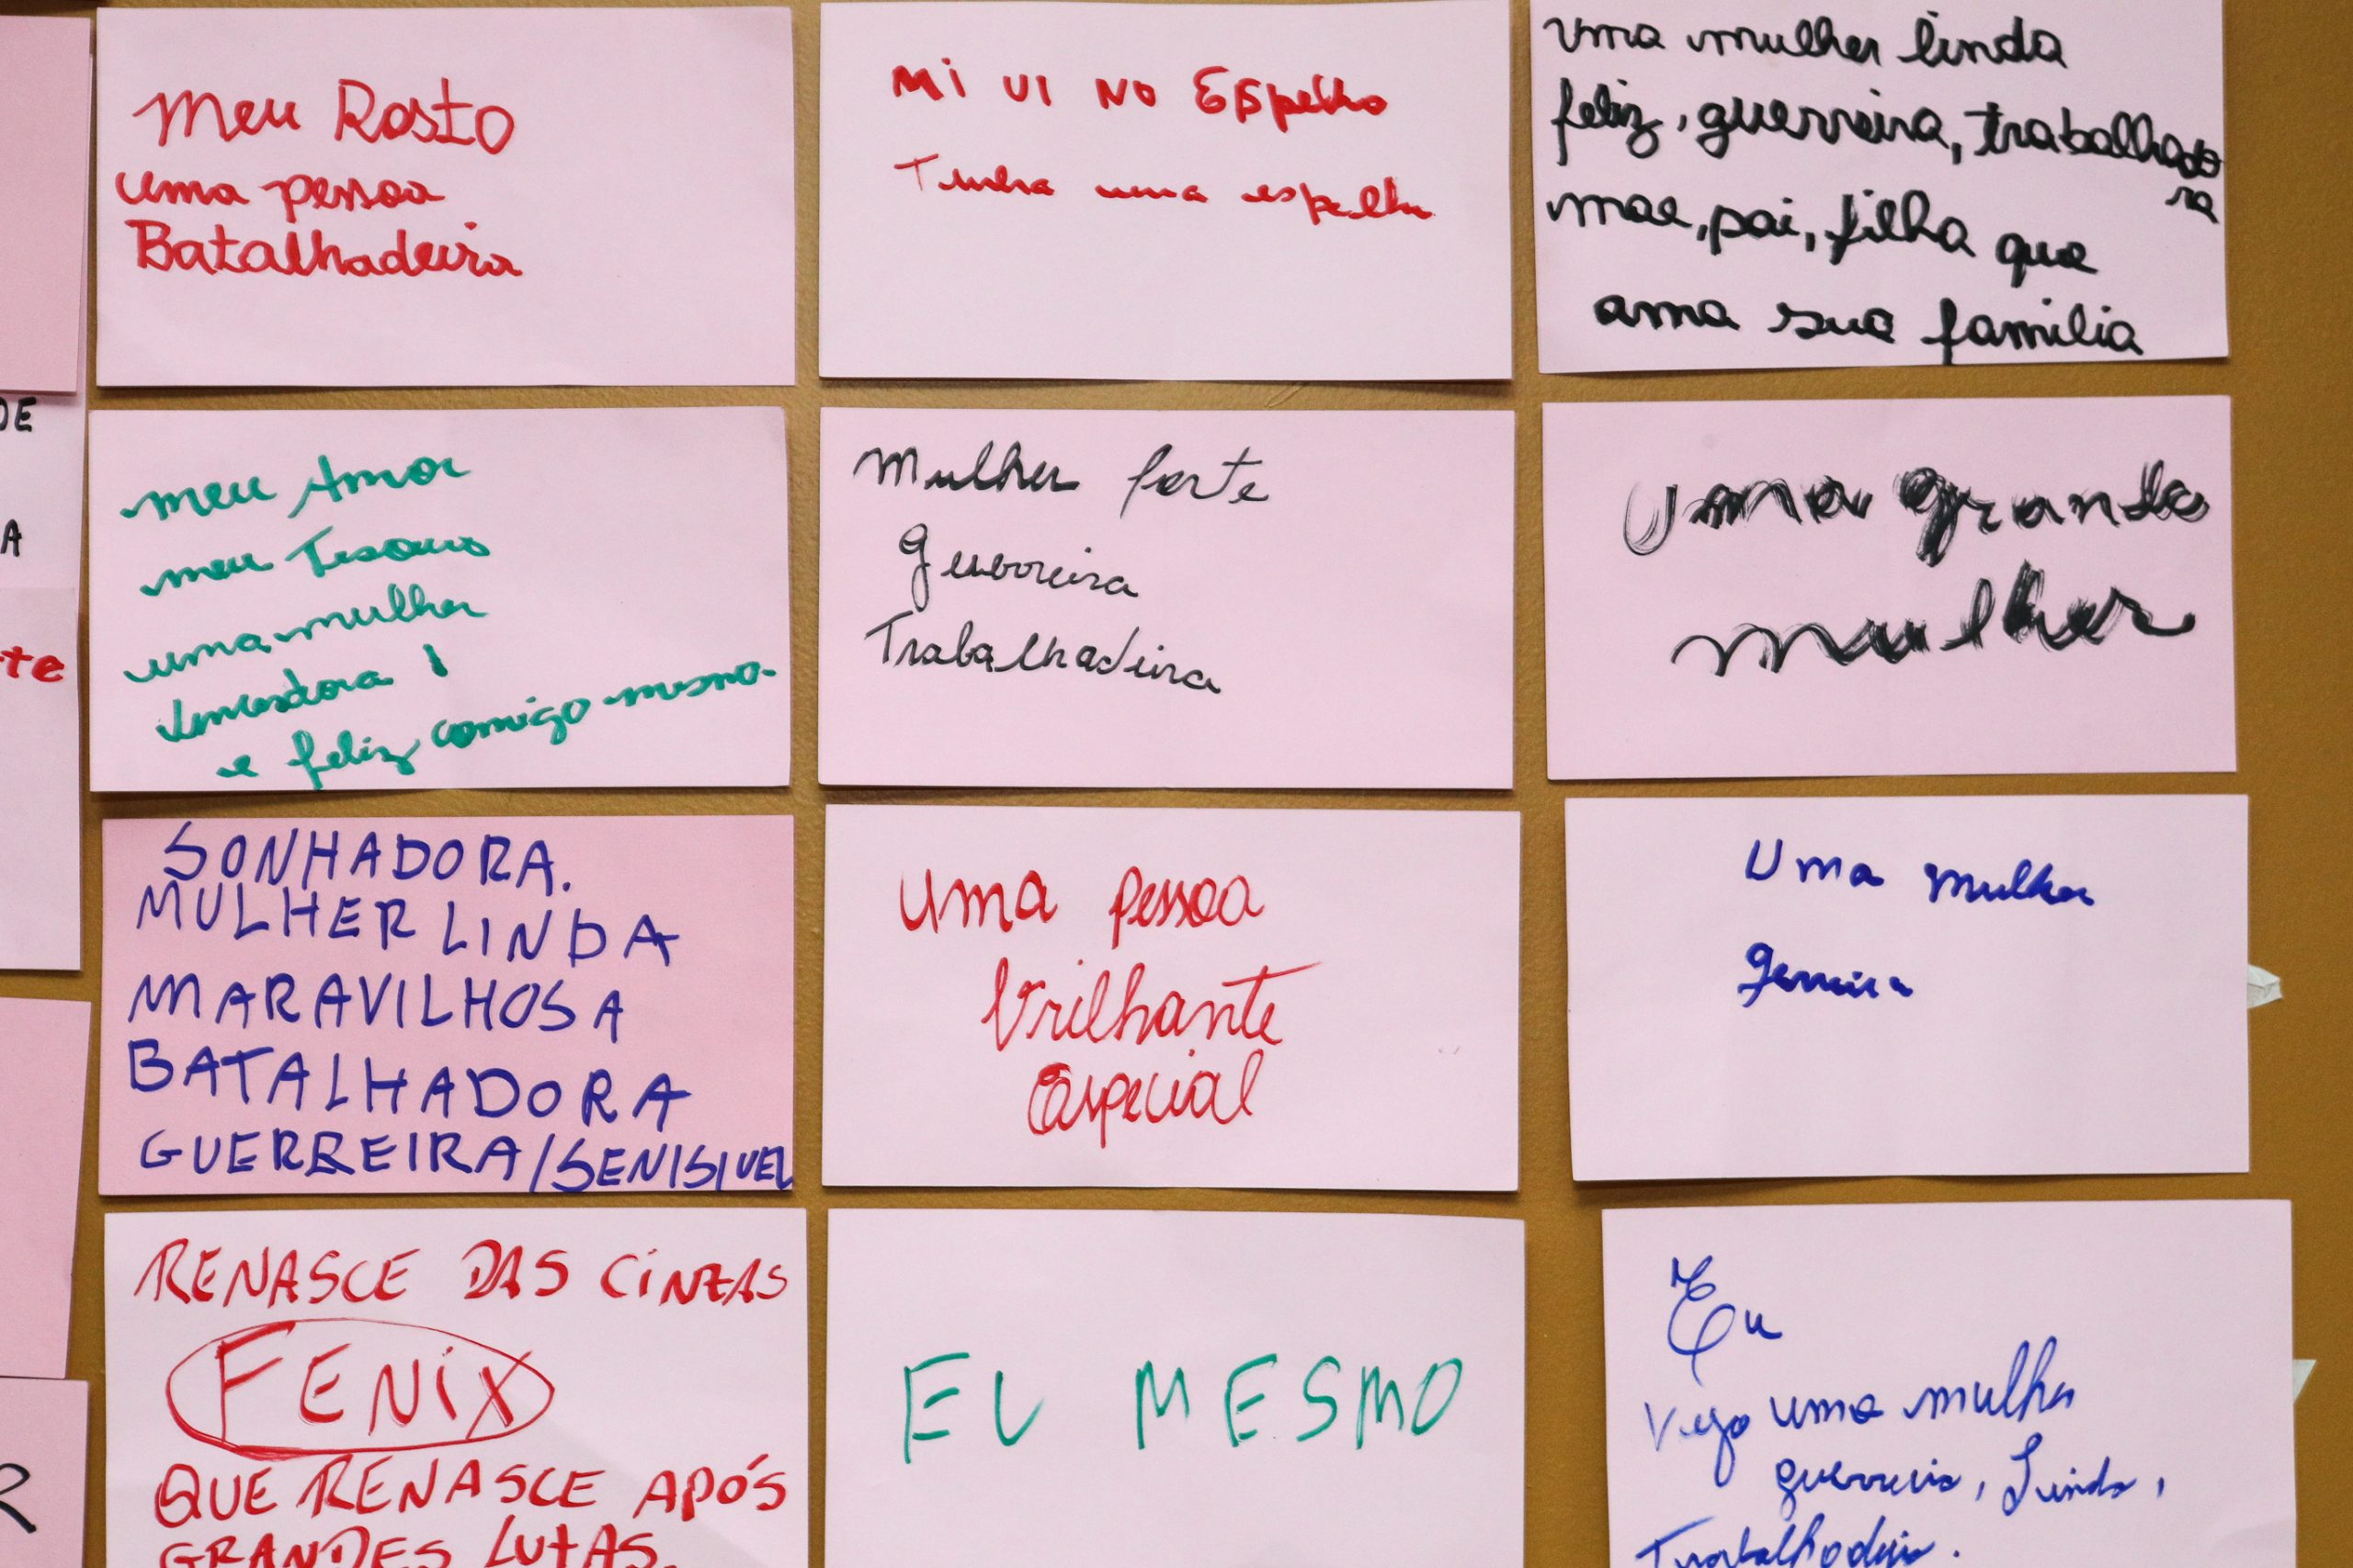 DE
A
te
R
Meu Rosto
uma pessoa
Batalhadeira
Mi VI NO ESpelho
Tinha uma espelho
Uma mulher linda
feliz, guerreira, trabalhado
ra
mae, pai, filha que
ama sua familia
meu Amor
meu Tesouro
uma mulher
Vencedora !
e feliz comigo mesma.
Mulher forte
Guerreira
Trabalhadeira
Uma grande
mulher
SONHADORA.
MULHER LINDA
MARAVILHOSA
BATALHADORA
GUERREIRA/SENISIVEL
Uma pessoa
brilhante
Especial
Uma mulher
gerreira
RENASCE DAS CiNZAS
FENiX
QUE RENASCE APÓS
GRANDES LUTAS.
EU MESMO
Eu
Vejo uma mulher
guerreira, Linda,
Trabalhadeira.